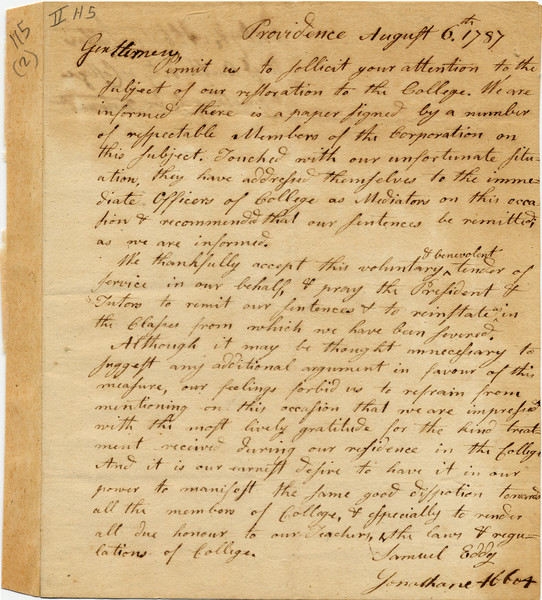 115
(2)
II H5
Providence August 6.th 1787
Gentlemen,
Permit us to sollicit your attention to the
subject of our restoration to the College. We are
informed there is a paper signed by a number
of respectable Members of the Corporation on
this subject. Touched with our unfortunate situ-
ation, they have addressed themselves to the imme-
diate Officers of College as Mediators on this occa-
sion & recommended that our sentences be remitted,
as we are informed.
We thankfully accept this voluntary & benevolent tender of
service in our behalf, & pray the President &
Tutors to remit our sentences & to reinstate us in
the Classes from which we have been severed.
Although it may be thought unnecessary to
suggest any additional argument in favour of this
measure, our feelings forbid us to refrain from
mentioning on this occasion that we are impressed
with the most lively gratitude for the kind treat
ment received during our residence in the College
And it is our earnest desire to have it in our
power to manifest the same good dispotion towards
all the members of College, & especially to render
all due honour to our Teachers, & the laws & regu-
lations of College.
Samuel Eddy
Jonathane Abbot